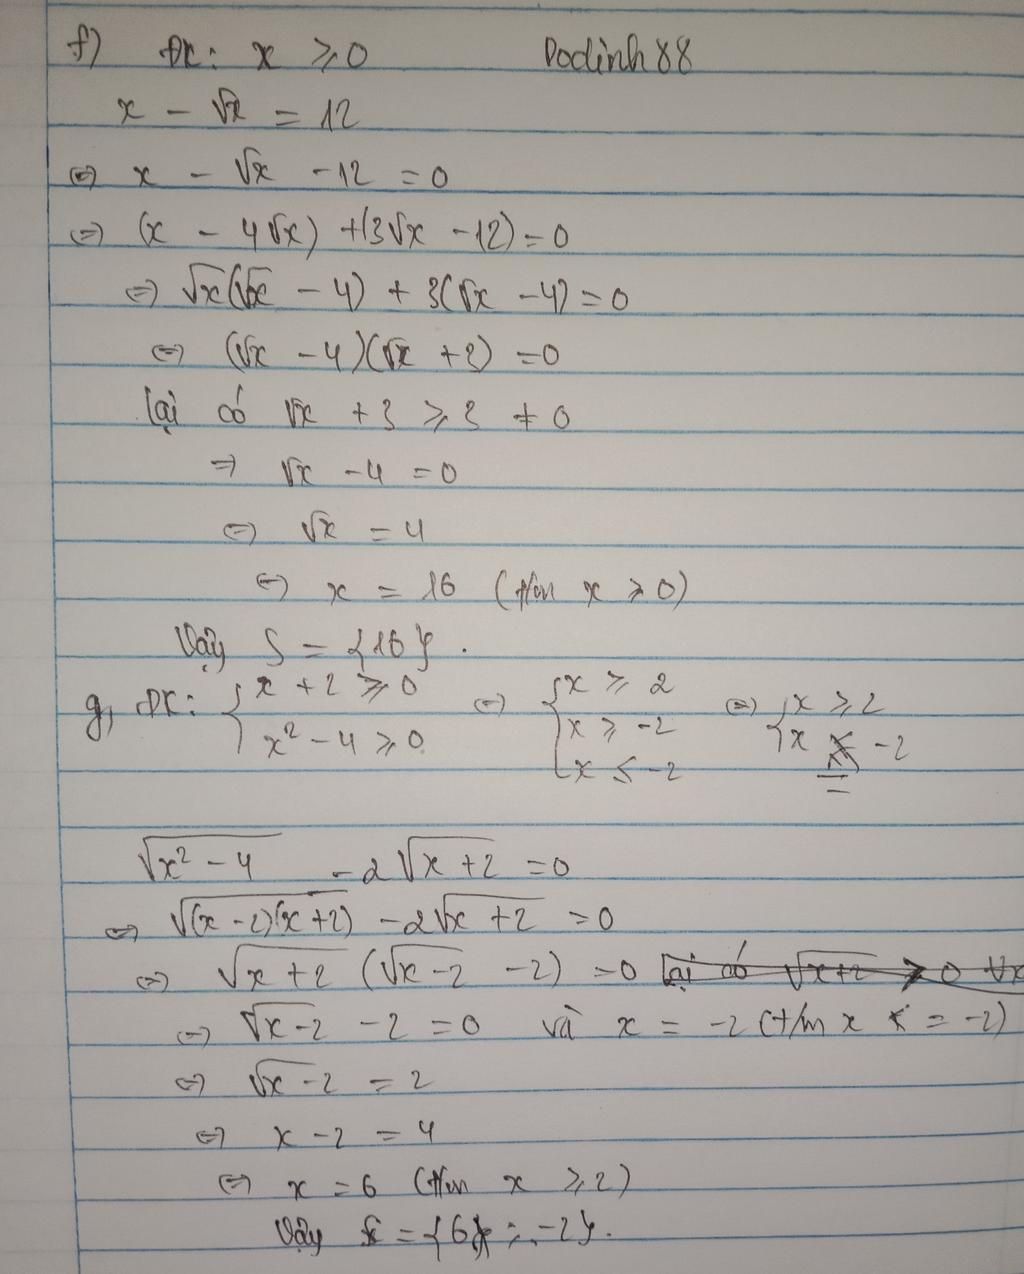 f) ĐK: x ≥ 0 Dodinh88
x - √x = 12
⇔ x - √x - 12 = 0
⇔ (x - 4√x) + (3√x - 12) = 0
⇔ √x(√x - 4) + 3(√x - 4) = 0
⇔ (√x - 4)(√x + 3) = 0
lại có √x + 3 ≥ 3 ≠ 0
⇒ √x - 4 = 0
⇔ √x = 4
⇔ x = 16 (t/m x ≥ 0)
Vậy S = {16}.
g, ĐK: { x + 2 ≥ 0 ⇔ { x ≥ 2 ⇔ { x ≥ 2
x² - 4 ≥ 0 x ≥ -2 x = -2
x ≤ -2
√(x² - 4) - 2√(x + 2) = 0
⇔ √((x - 2)(x + 2)) - 2√(x + 2) = 0
⇔ √(x + 2) (√(x - 2) - 2) = 0 lại có √(x + 2) ≥ 0 ∀x
⇔ √(x - 2) - 2 = 0 và x = -2 (t/m x = -2)
⇔ √(x - 2) = 2
⇔ x - 2 = 4
⇔ x = 6 (t/m x ≥ 2)
Vậy S = {6; -2}.